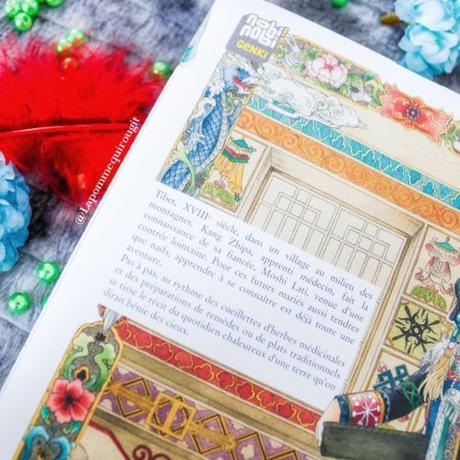 nobi!
nobi!
GENKI
@Lapommequirougit
Tibet, XVIIIᵉ siècle, dans un village au milieu des
montagnes, Kang Zhipa, apprenti médecin, fait la
connaissance de sa fiancée, Moshi Lati, venue d'une
contrée lointaine. Pour ces futurs mariés aussi tendres
que naïfs, apprendre à se connaître est déjà toute une
aventure.
Pas à pas, au rythme des cueillettes d'herbes médicinales
et des préparations de remèdes ou de plats traditionnels
se tisse le récit du quotidien chaleureux d'une terre qu'on
dirait bénie des cieux.